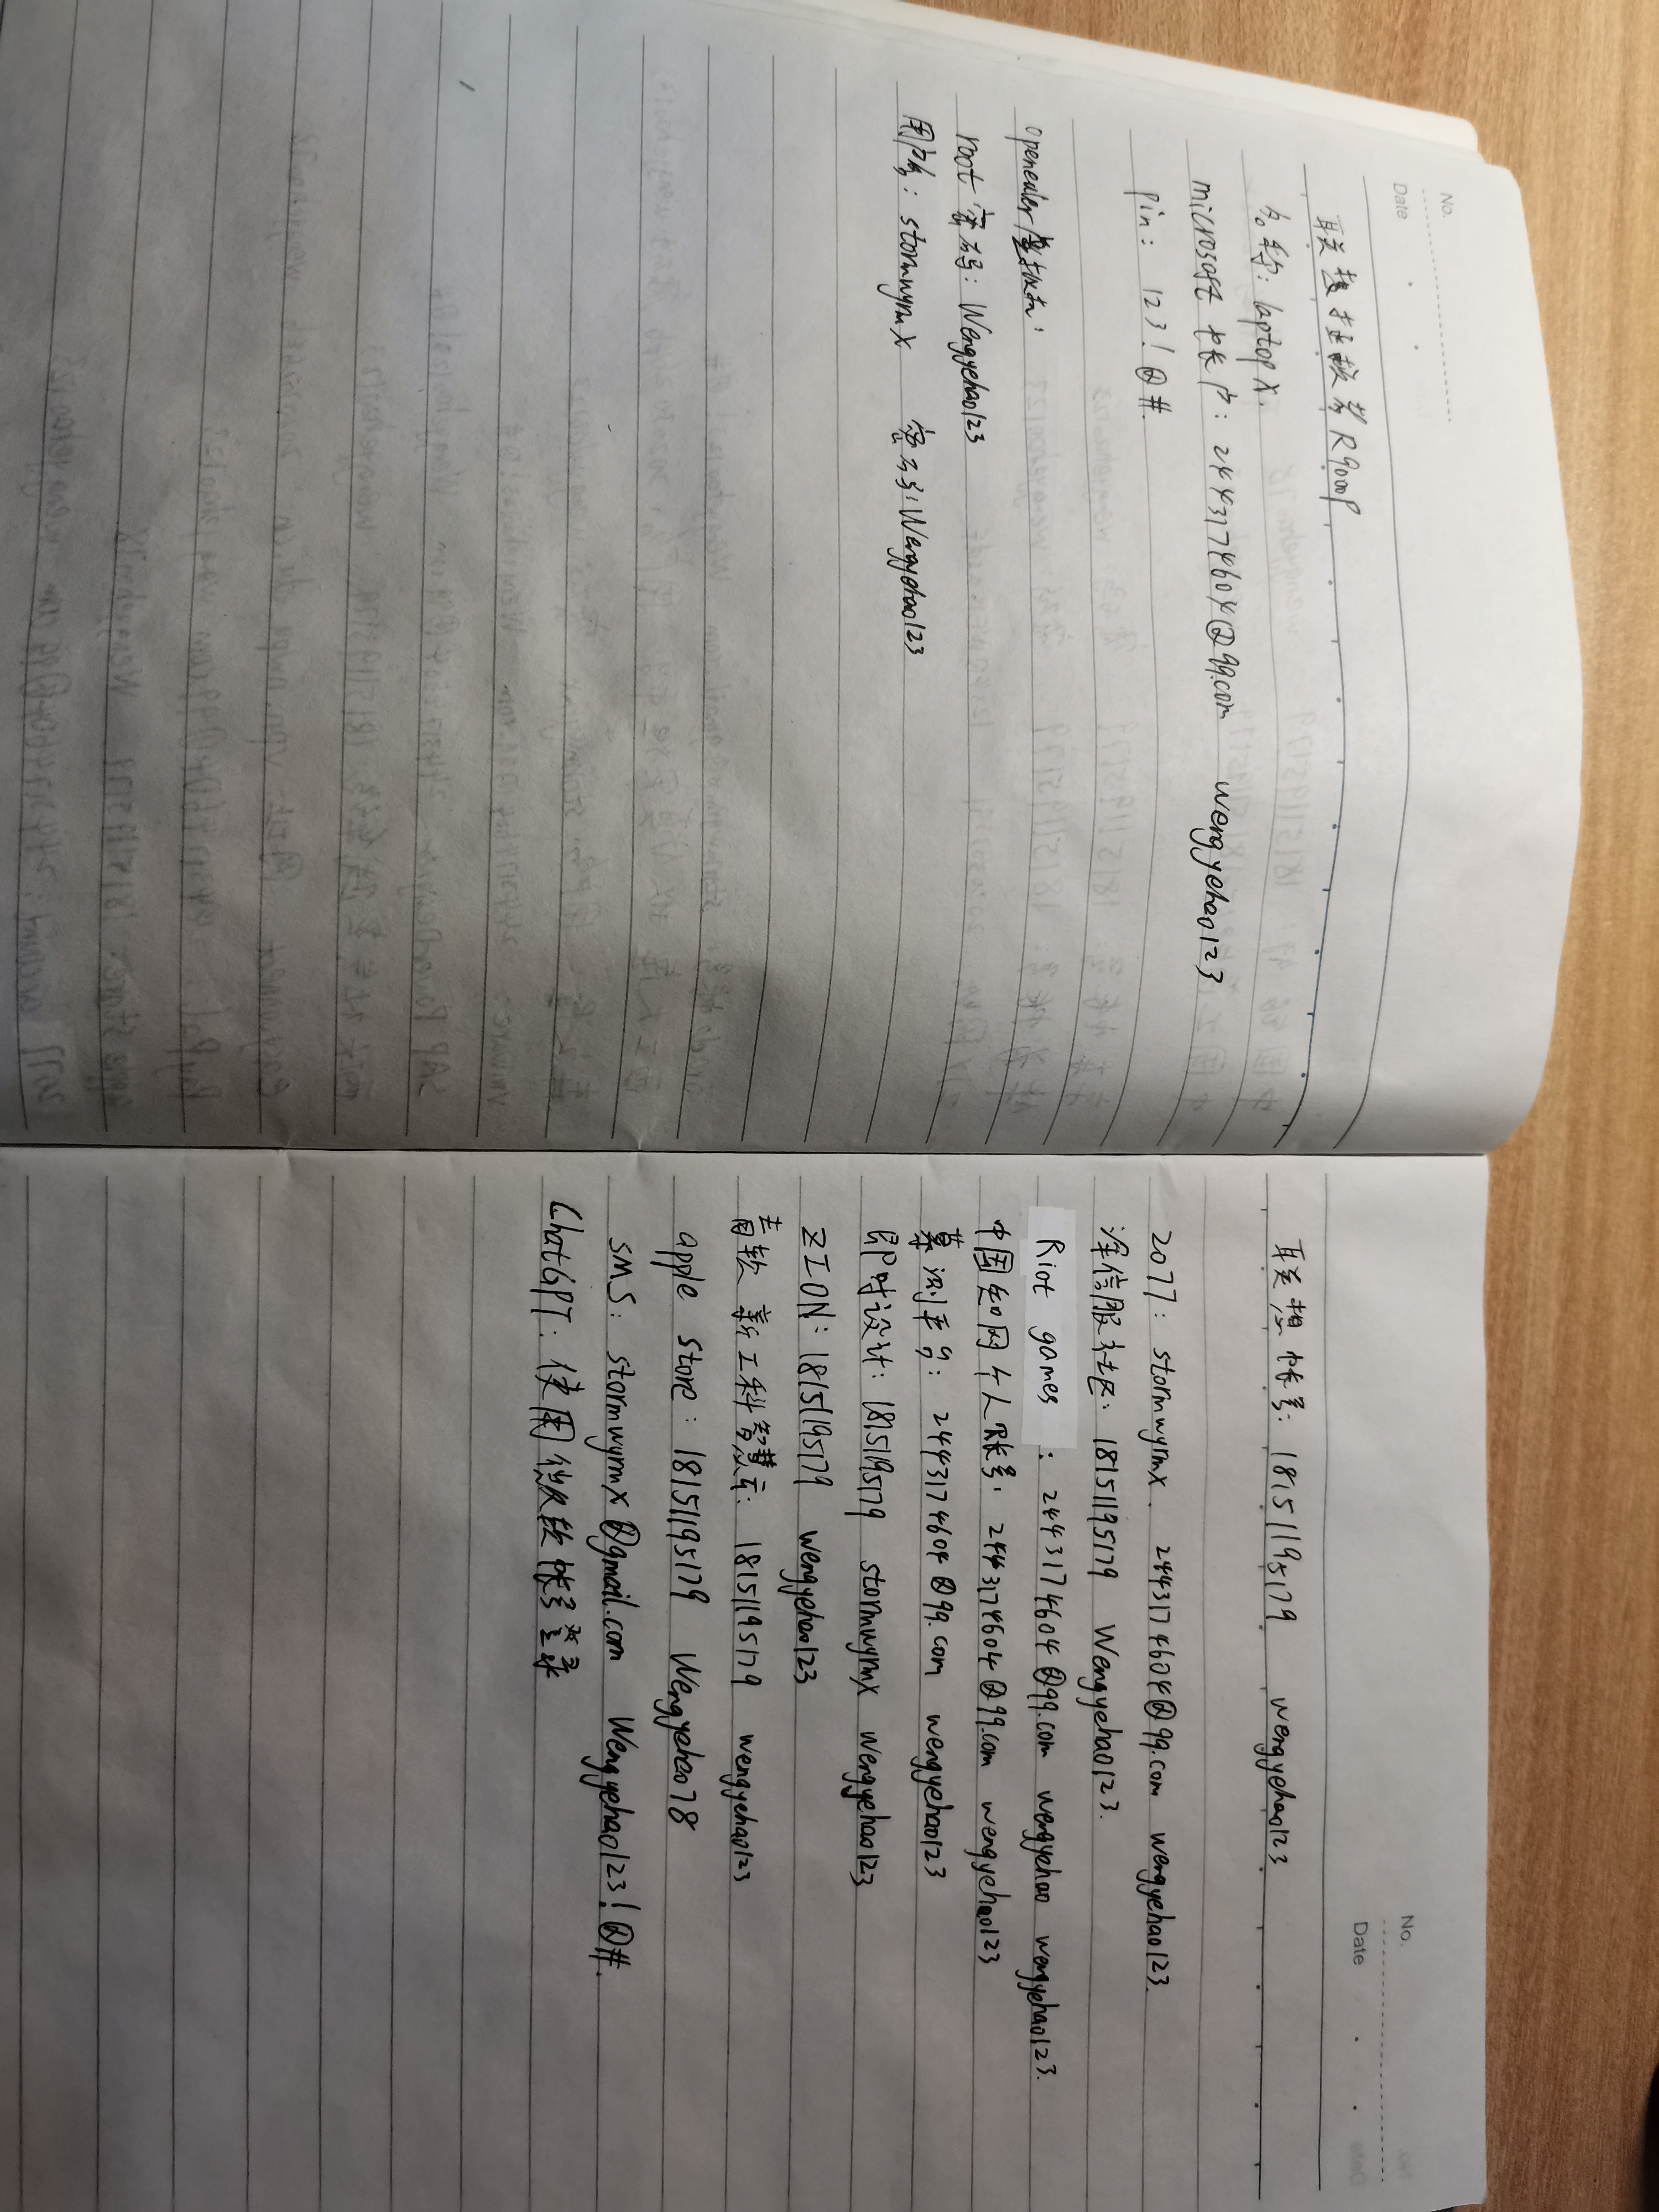 No.
Date
联想拯救者R9000P
名称: laptop X.
microsoft 帐户: 2443174604@qq.com wengyehao123
pin: 123!@#.
openeuler虚拟机:
root 密码: Wengyehao123
用户名: stormwyrmx 密码: Wengyehao123
No.
Date
联想帐号: 18151195179 wengyehao123
2077: stormwyrmx. 2443174604@qq.com wengyehao123.
深信服社区: 18151195179 Wengyehao123.
Riot games : 2443174604@qq.com wengyehao wengyehao123.
中国知网个人账号: 2443174604@qq.com wengyehao123
慕测平台: 2443174604@qq.com wengyehao123
即时设计: 18151195179 stormwyrmx wengyehao123
ZION: 18151195179 wengyehao123
青软 新工科智慧云: 18151195179 wengyehao123
apple store: 18151195179 Wengyehao78
SMS: stormwyrmx@gmail.com Wengyehao123!@#.
ChatGPT: 使用微软帐号登录